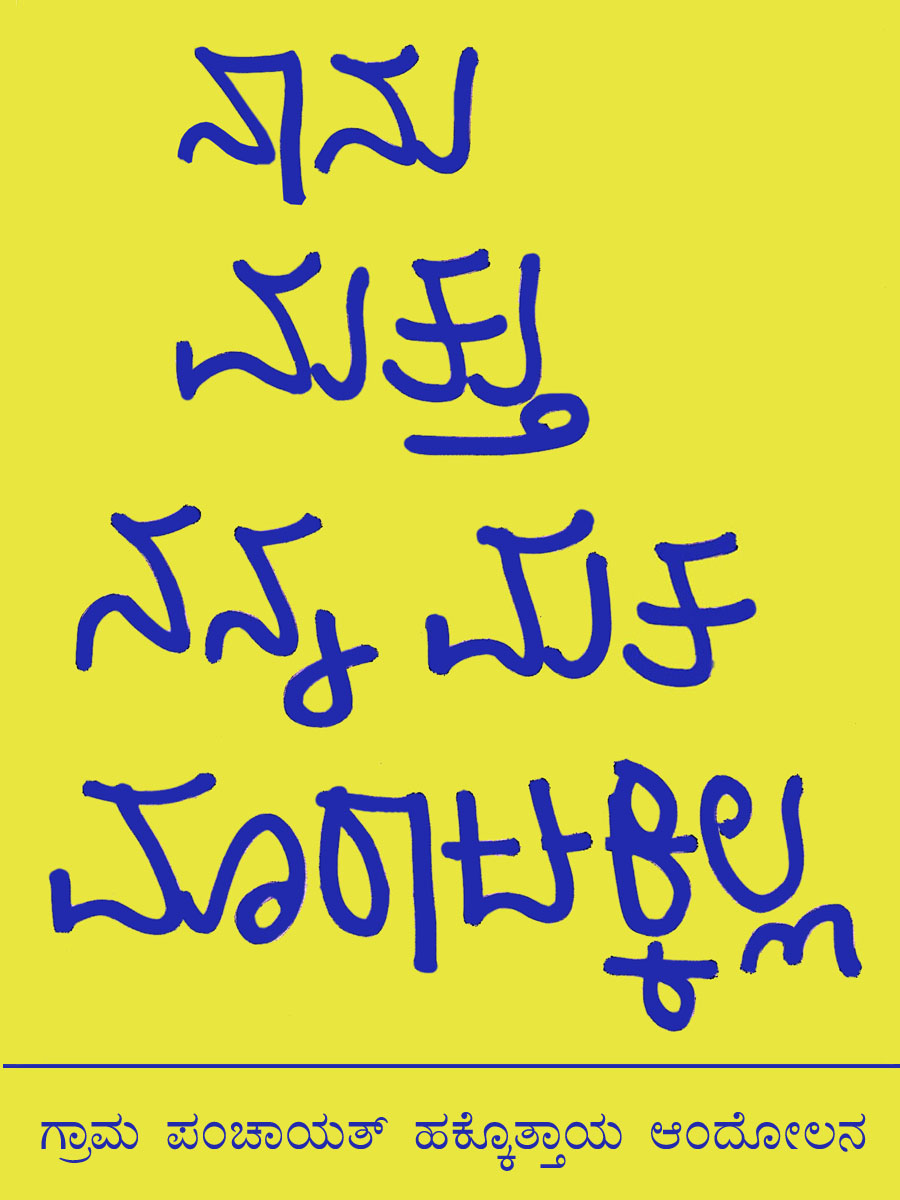 ನಾನು
ಮತ್ತು
ನನ್ನ ಮತ
ಮಾರಾಟಕ್ಕಿಲ್ಲ
ಗ್ರಾಮ ಪಂಚಾಯತ್ ಹಕ್ಕೊತ್ತಾಯ ಆಂದೋಲನ